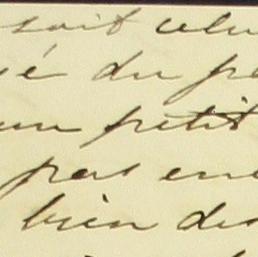 soit celu
é du pe
un petit
pas en
bien des